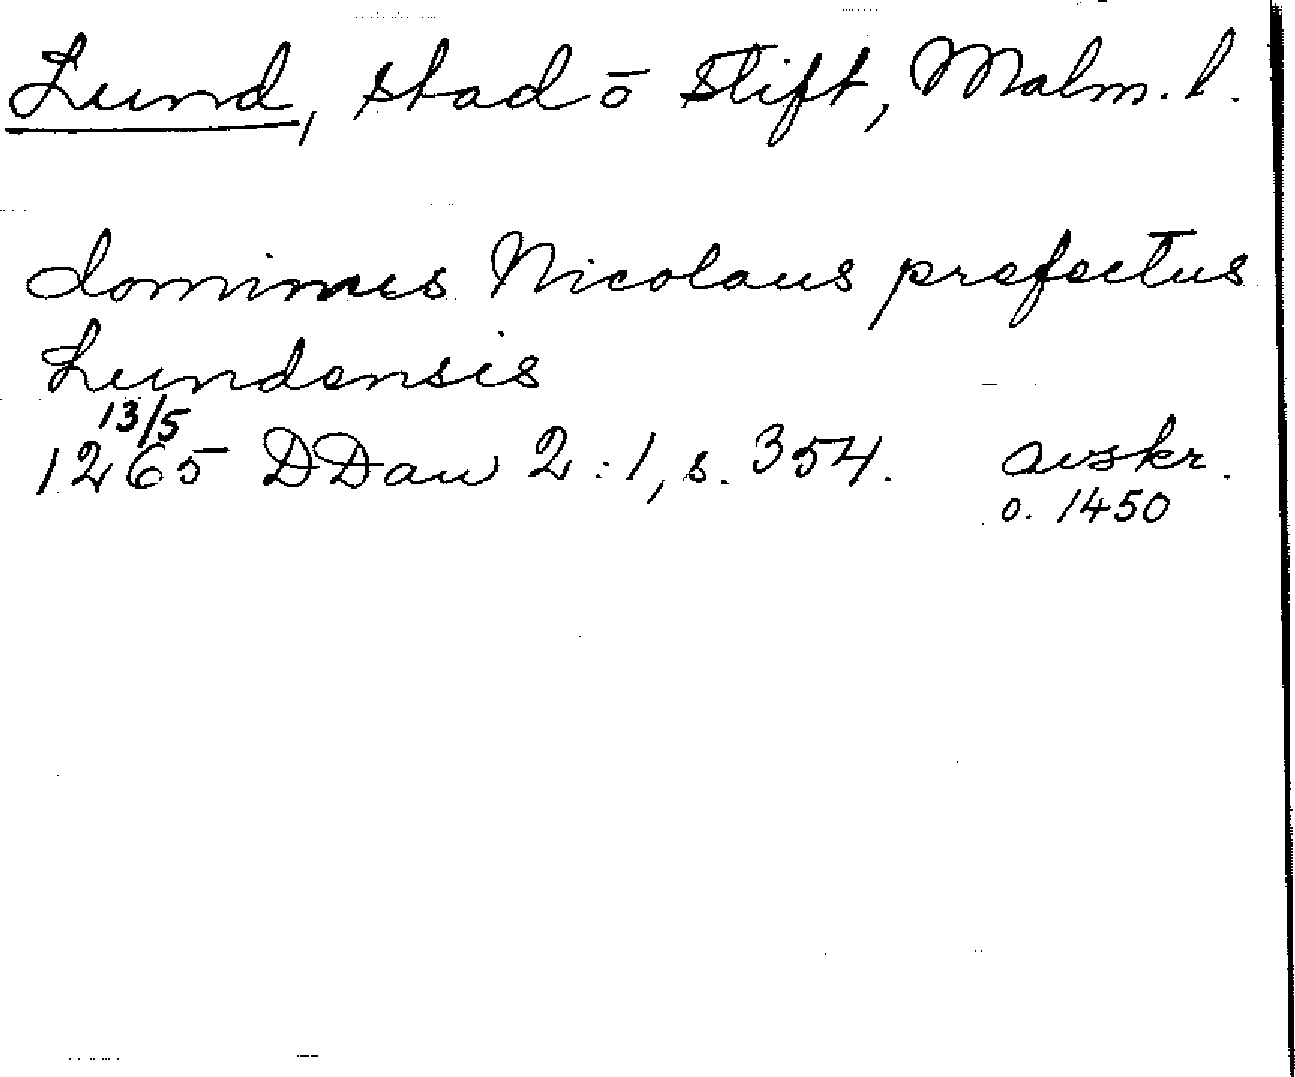 Lund, stad o Stift, Malm. l.
dominus Nicolaus prefectus
Lundensis
13/5
1265 DDan 2:1, s. 354. avskr.
o. 1450